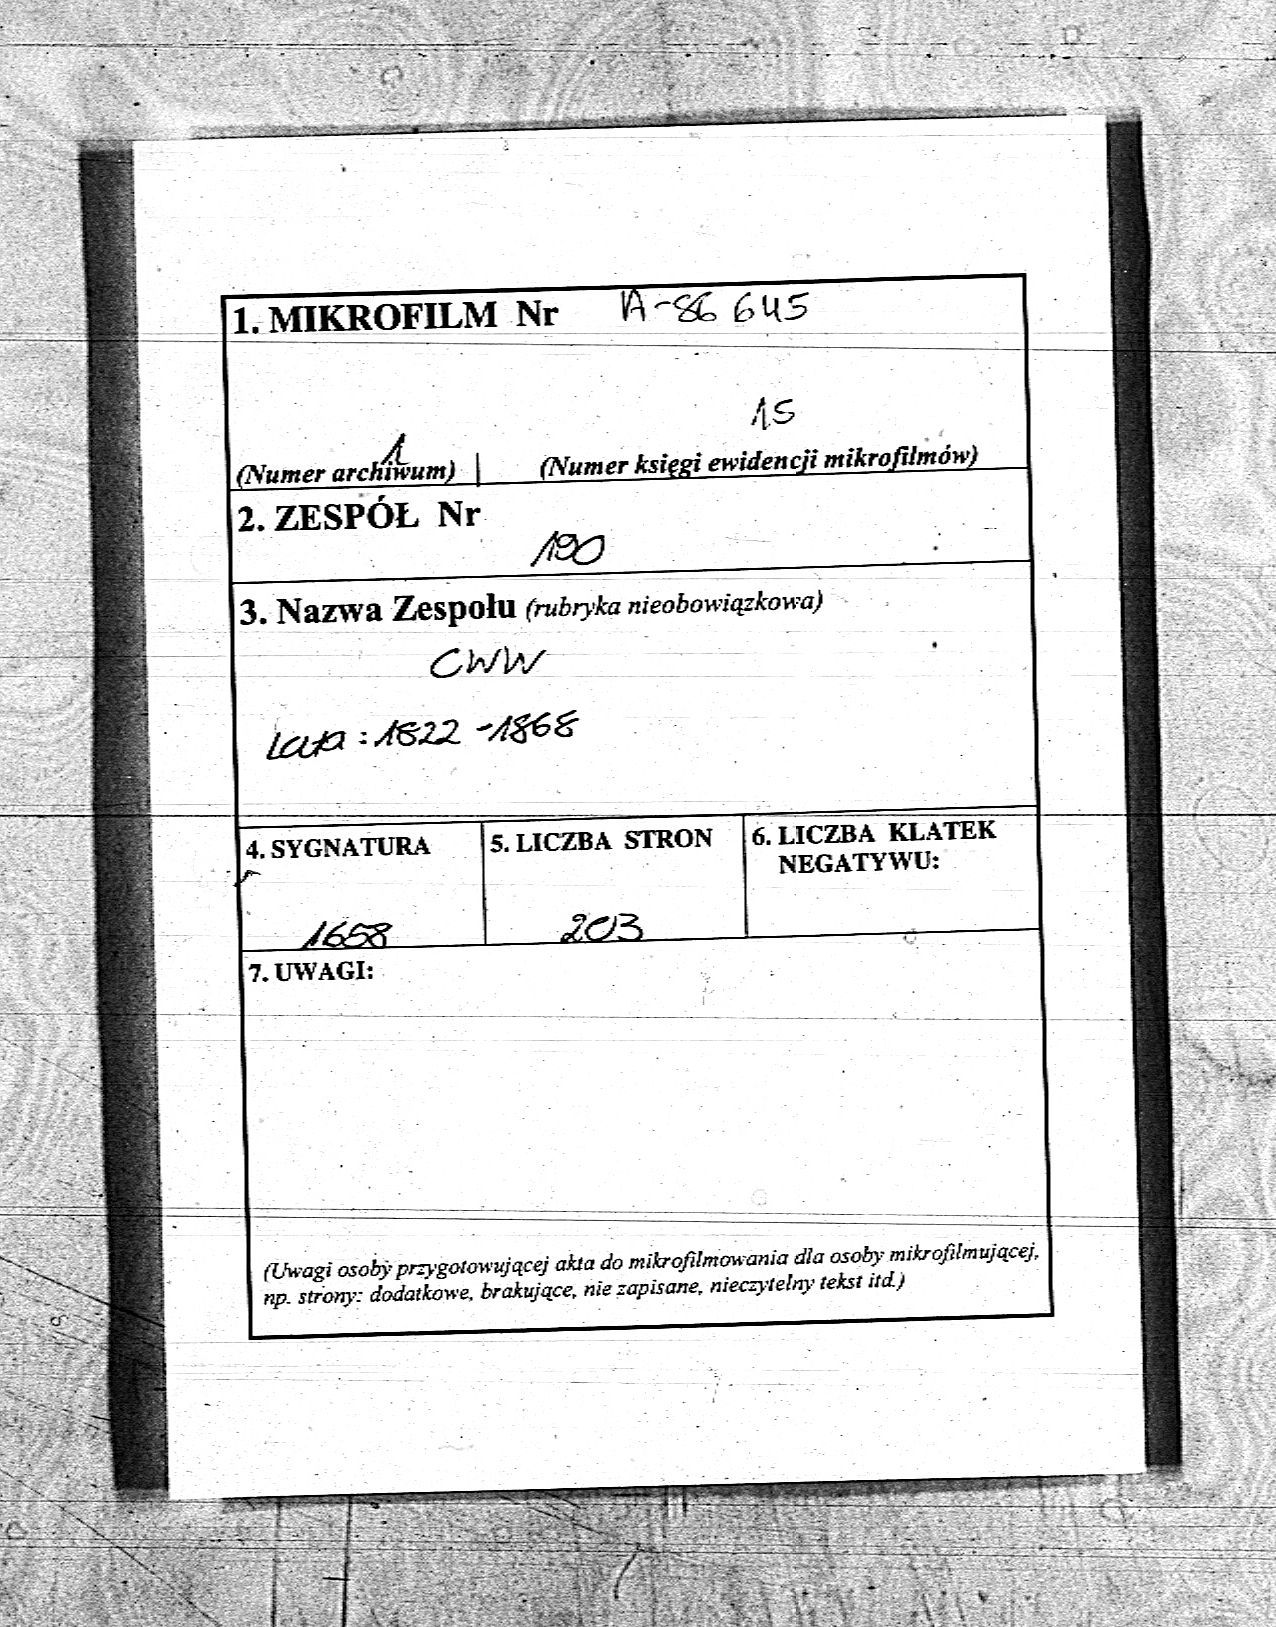 1. MIKROFILM Nr A-86 645
1 15
(Numer archiwum) | (Numer księgi ewidencji mikrofilmów)
2. ZESPÓŁ Nr
190
3. Nazwa Zespołu (rubryka nieobowiązkowa)
CWW
Lata : 1822 - 1868
4. SYGNATURA
1658
5. LICZBA STRON
203
6. LICZBA KLATEK
NEGATYWU:
7. UWAGI:
(Uwagi osoby przygotowującej akta do mikrofilmowania dla osoby mikrofilmującej,
np. strony: dodatkowe, brakujące, nie zapisane, nieczytelny tekst itd.)